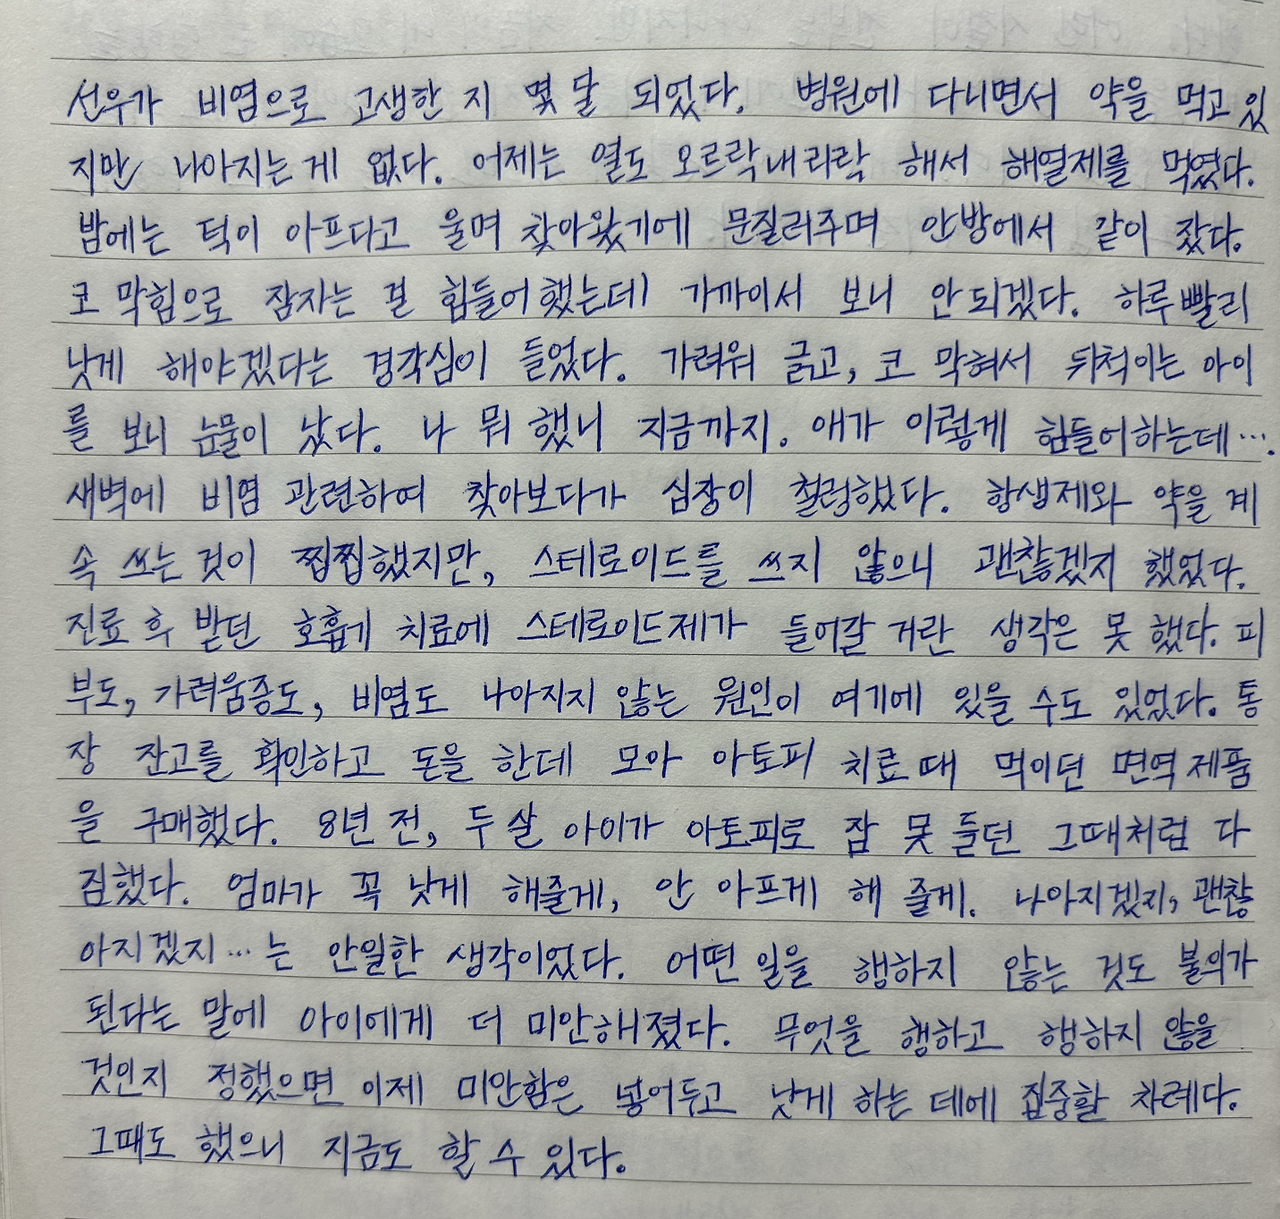 선우가 비염으로 고생한 지 몇 달 되었다. 병원에 다니면서 약을 먹고 있
지만 나아지는 게 없다. 어제는 열도 오르락내리락 해서 해열제를 먹였다.
밤에는 턱이 아프다고 울며 찾아왔기에 문질러주며 안방에서 같이 잤다.
코 막힘으로 잠자는 걸 힘들어했는데 가까이서 보니 안되겠다. 하루빨리
낫게 해야겠다는 경각심이 들었다. 가려워 긁고, 코 막혀서 뒤척이는 아이
를 보니 눈물이 났다. 나 뭐 했니 지금까지. 애가 이렇게 힘들어하는데….
새벽에 비염 관련하여 찾아보다가 심장이 철렁했다. 항생제와 약을 계
속 쓰는 것이 찝찝했지만, 스테로이드를 쓰지 않으니 괜찮겠지 했었다.
진료 후 받던 호흡기 치료에 스테로이드제가 들어갈 거란 생각은 못 했다. 피
부도, 가려움증도, 비염도 나아지지 않는 원인이 여기에 있을 수도 있었다. 통
장 잔고를 확인하고 돈을 한데 모아 아토피 치료 때 먹이던 면역 제품
을 구매했다. 8년 전, 두 살 아이가 아토피로 잠 못 들던 그때처럼 다
짐했다. 엄마가 꼭 낫게 해줄게, 안 아프게 해 줄게. 나아지겠지, 괜찮
아지겠지…는 안일한 생각이었다. 어떤 일을 행하지 않는 것도 불의가
된다는 말에 아이에게 더 미안해졌다. 무엇을 행하고 행하지 않을
것인지 정했으면 이제 미안함은 넣어두고 낫게 하는 데에 집중할 차례다.
그때도 했으니 지금도 할 수 있다.